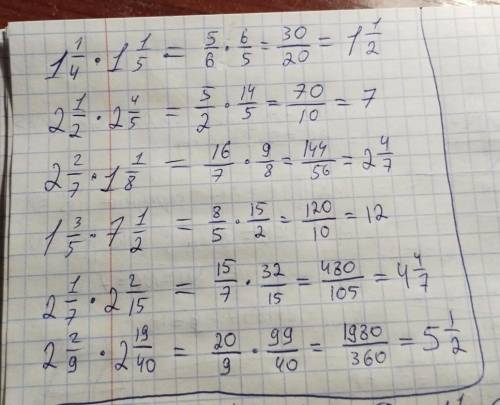 1 1/4 · 1 1/5 = 5/6 · 6/5 = 30/20 = 1 1/2
2 1/2 · 2 4/5 = 5/2 · 14/5 = 70/10 = 7
2 2/7 · 1 1/8 = 16/7 · 9/8 = 144/56 = 2 4/7
1 3/5 · 7 1/2 = 8/5 · 15/2 = 120/10 = 12
2 1/7 · 2 2/15 = 15/7 · 32/15 = 480/105 = 4 4/7
2 2/9 · 2 19/40 = 20/9 · 99/40 = 1980/360 = 5 1/2